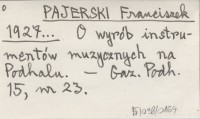 PAJERSKI Franciszek
1927... O wyrób instru-
mentów muzycznych na
Podhalu. — Gaz. Podh.
15, nr 23.